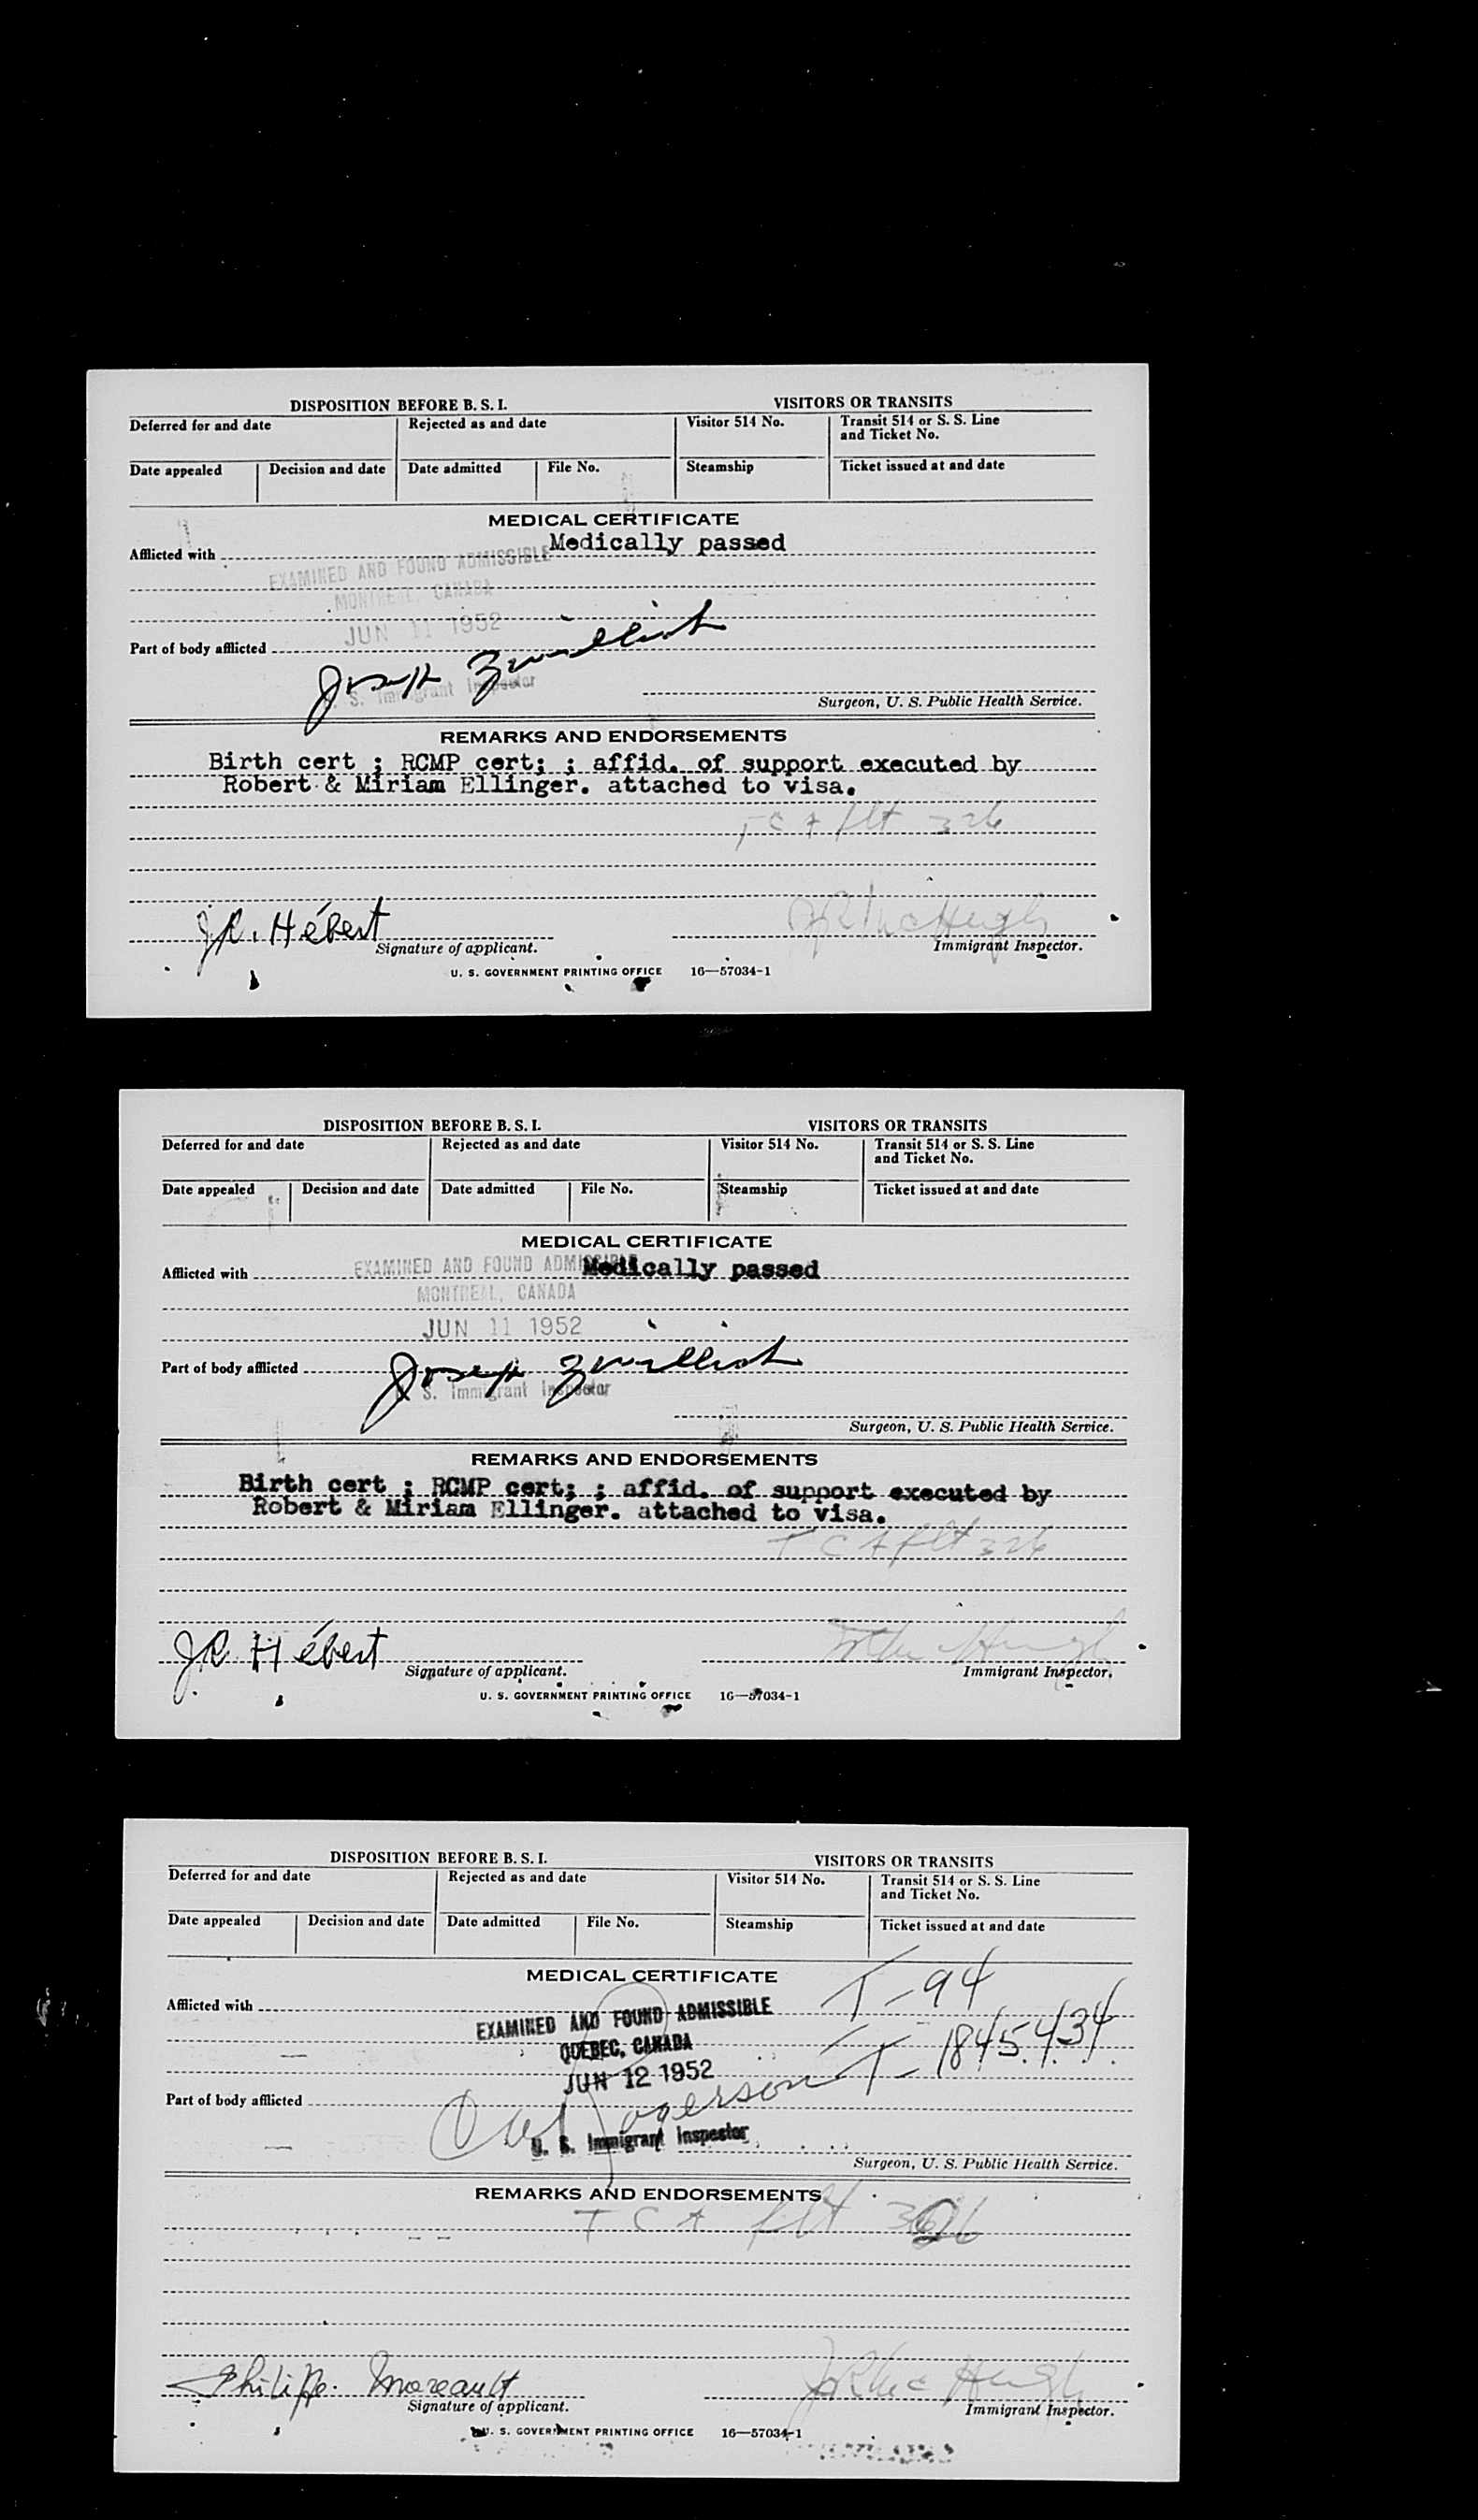 DISPOSITION BEFORE B. S. I. VISITORS OR TRANSITS
Deferred for and date Rejected as and date Visitor 514 No. Transit 514 or S. S. Line and Ticket No.
Date appealed Decision and date Date admitted File No. Steamship Ticket issued at and date
MEDICAL CERTIFICATE
Afflicted with Medically passed
EXAMINED AND FOUND ADMISSIBLE
MONTREAL, CANADA
JUN 11 1952
Part of body afflicted
Joseph
S. Immigrant Inspector
Surgeon, U. S. Public Health Service.
REMARKS AND ENDORSEMENTS
Birth cert ; RCMP cert; ; affid. of support executed by
Robert & Miriam Ellinger. attached to visa.
TCA flt 326
J.R. Hébert JR McHugh
Signature of applicant. Immigrant Inspector.
U. S. GOVERNMENT PRINTING OFFICE 16—57034-1
DISPOSITION BEFORE B. S. I. VISITORS OR TRANSITS
Deferred for and date Rejected as and date Visitor 514 No. Transit 514 or S. S. Line and Ticket No.
Date appealed Decision and date Date admitted File No. Steamship Ticket issued at and date
MEDICAL CERTIFICATE
Afflicted with Medically passed
EXAMINED AND FOUND ADMISSIBLE
MONTREAL, CANADA
JUN 11 1952
Part of body afflicted
Joseph
S. Immigrant Inspector
Surgeon, U. S. Public Health Service.
REMARKS AND ENDORSEMENTS
Birth cert ; RCMP cert; ; affid. of support executed by
Robert & Miriam Ellinger. attached to visa.
TCA flt 326
J.R. Hébert
Signature of applicant. Immigrant Inspector.
U. S. GOVERNMENT PRINTING OFFICE 16—57034-1
DISPOSITION BEFORE B. S. I. VISITORS OR TRANSITS
Deferred for and date Rejected as and date Visitor 514 No. Transit 514 or S. S. Line and Ticket No.
Date appealed Decision and date Date admitted File No. Steamship Ticket issued at and date
MEDICAL CERTIFICATE
T-94
Afflicted with
EXAMINED AND FOUND ADMISSIBLE
QUEBEC, CANADA
T-1845434
JUN 12 1952
Part of body afflicted
U. S. Immigrant Inspector
Surgeon, U. S. Public Health Service.
REMARKS AND ENDORSEMENTS
TCA flt 326
Philippe Moreault JR McHugh
Signature of applicant. Immigrant Inspector.
U. S. GOVERNMENT PRINTING OFFICE 16—57034-1